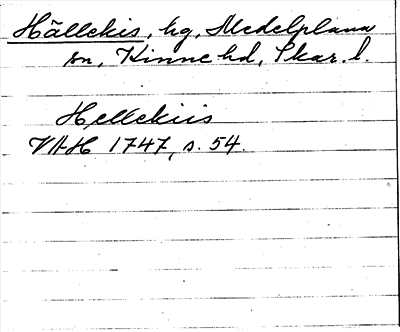 Hällekis, hg, Medelplana
sn, Kinne hd, Skar. l.
Hellekiis
VAH 1747, s. 54.